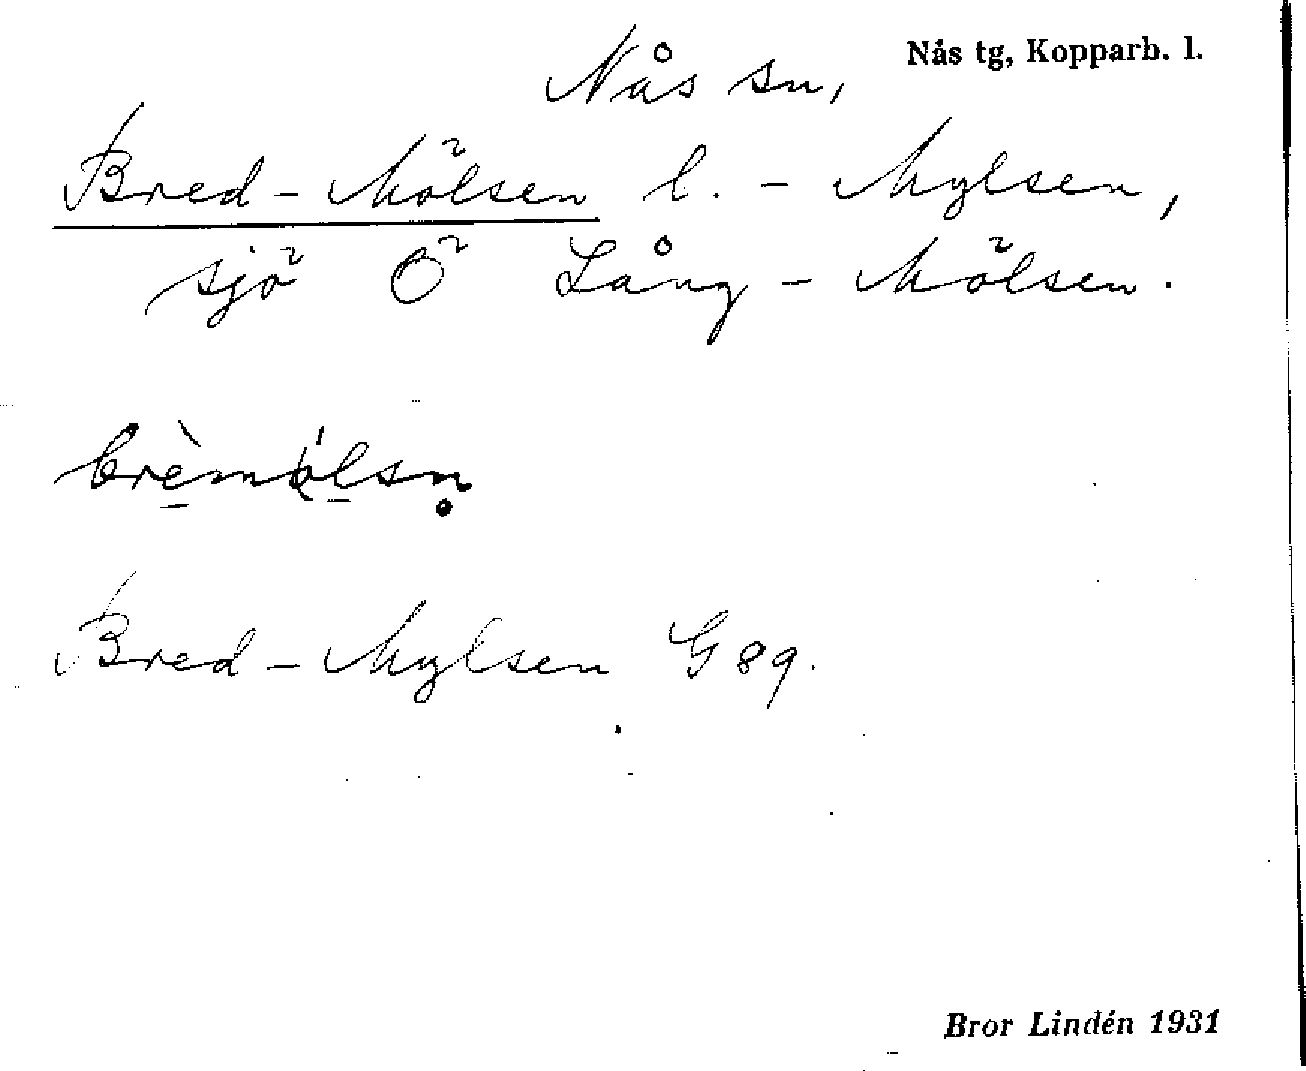 Nås tg, Kopparb. l.
Nås sn,
Bred-Mölsen l. - Mylsen,
sjö Ö Lång-Mölsen.
brèmölsn̥
Bred-Mylsen G 89.
Bror Lindén 1931